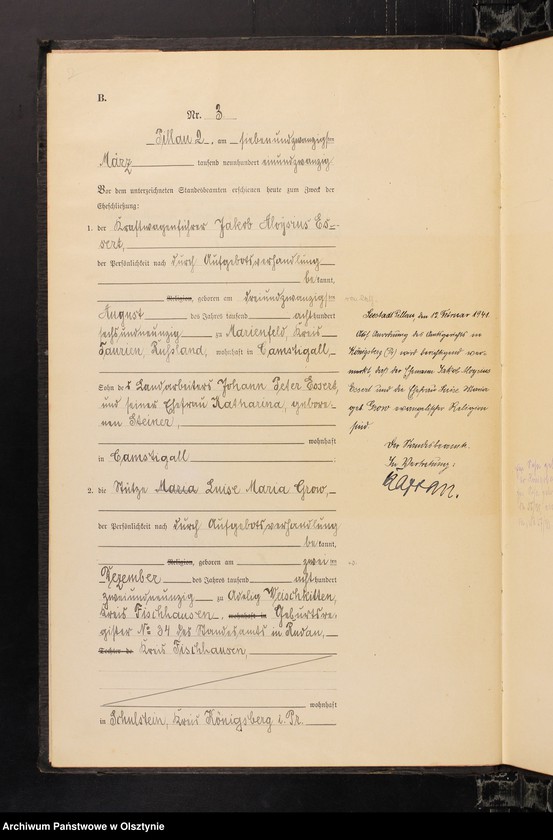 B.
Nr. 3
Pillau 2, am siebenundzwanzigsten
März tausend neunhundert einundzwanzig
Vor dem unterzeichneten Standesbeamten erschienen heute zum Zweck der
Eheschließung:
1. der Kraftwagenführer Jakob Aloysius Es-
sert,
der Persönlichkeit nach durch Aufgebotsverhandlung
bekannt,
Religion, geboren am dreiundzwanzigsten
August des Jahres tausend achthundert
sechsundneunzig zu Marienfeld, Kreis
Taurien, Rußland, wohnhaft in Camstigall
Sohn des Landarbeiters Johann Peter Essert
und seiner Ehefrau Katharina, gebore-
nen Steiner,
wohnhaft
in Camstigall
2. die Stütze Maria Luise Maria Grow,
der Persönlichkeit nach durch Aufgebotsverhandlung
bekannt,
Religion, geboren am zweiten
Dezember des Jahres tausend achthundert
zweiundneunzig zu Adelig Weischkitten,
Kreis Fischhausen. wohnhaft in Geburtsre-
gister No 34 des Standesamts in Rudau,
Tochter de Kreis Fischhausen,
wohnhaft
in Schulstein, Kreis Königsberg i. Pr.
Seestadt Pillau, den 12. Februar 1941.
Auf Anordnung des Amtsgerichts in
Königsberg (Pr) wird berichtigend ver-
merkt, daß der Ehemann Jakob Aloysius
Essert und die Ehefrau Luise Maria
geb. Grow evangelischer Religion
sind.
Der Standesbeamte.
In Vertretung:
Archiwum Państwowe w Olsztynie